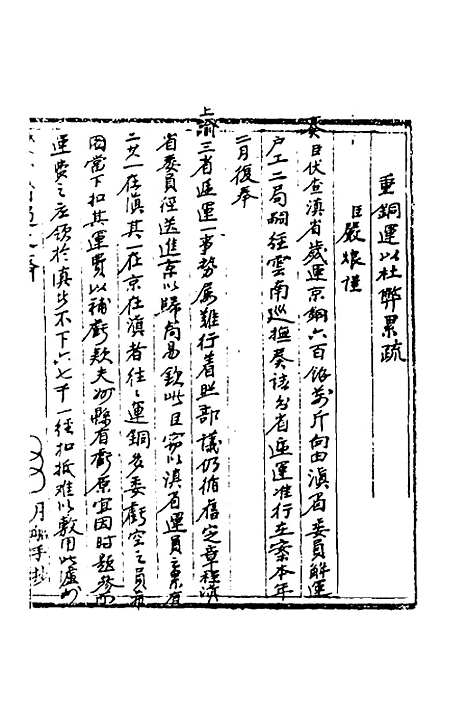 重銅運以杜弊累疏
臣嚴烺謹
奏臣伏查滇省歲運京銅六百餘萬斤向由滇省委員解運
戶工二局嗣經雲南巡撫奏請分省遞運准行在案本年
二月復奉
上諭三省遞運一事務屬難行着照部議仍循舊定章程滇
省委員徑送進京以歸簡易欽此臣竊以滇省運員之累有
二其一在滇其一在京在滇者往往運銅多委虧空之員而
因當下扣其運費以補虧欵夫州縣有虧原宜因時題參而
運費之应領於滇皆不下六七千一經扣抵难以敷用此虛
月 手抄